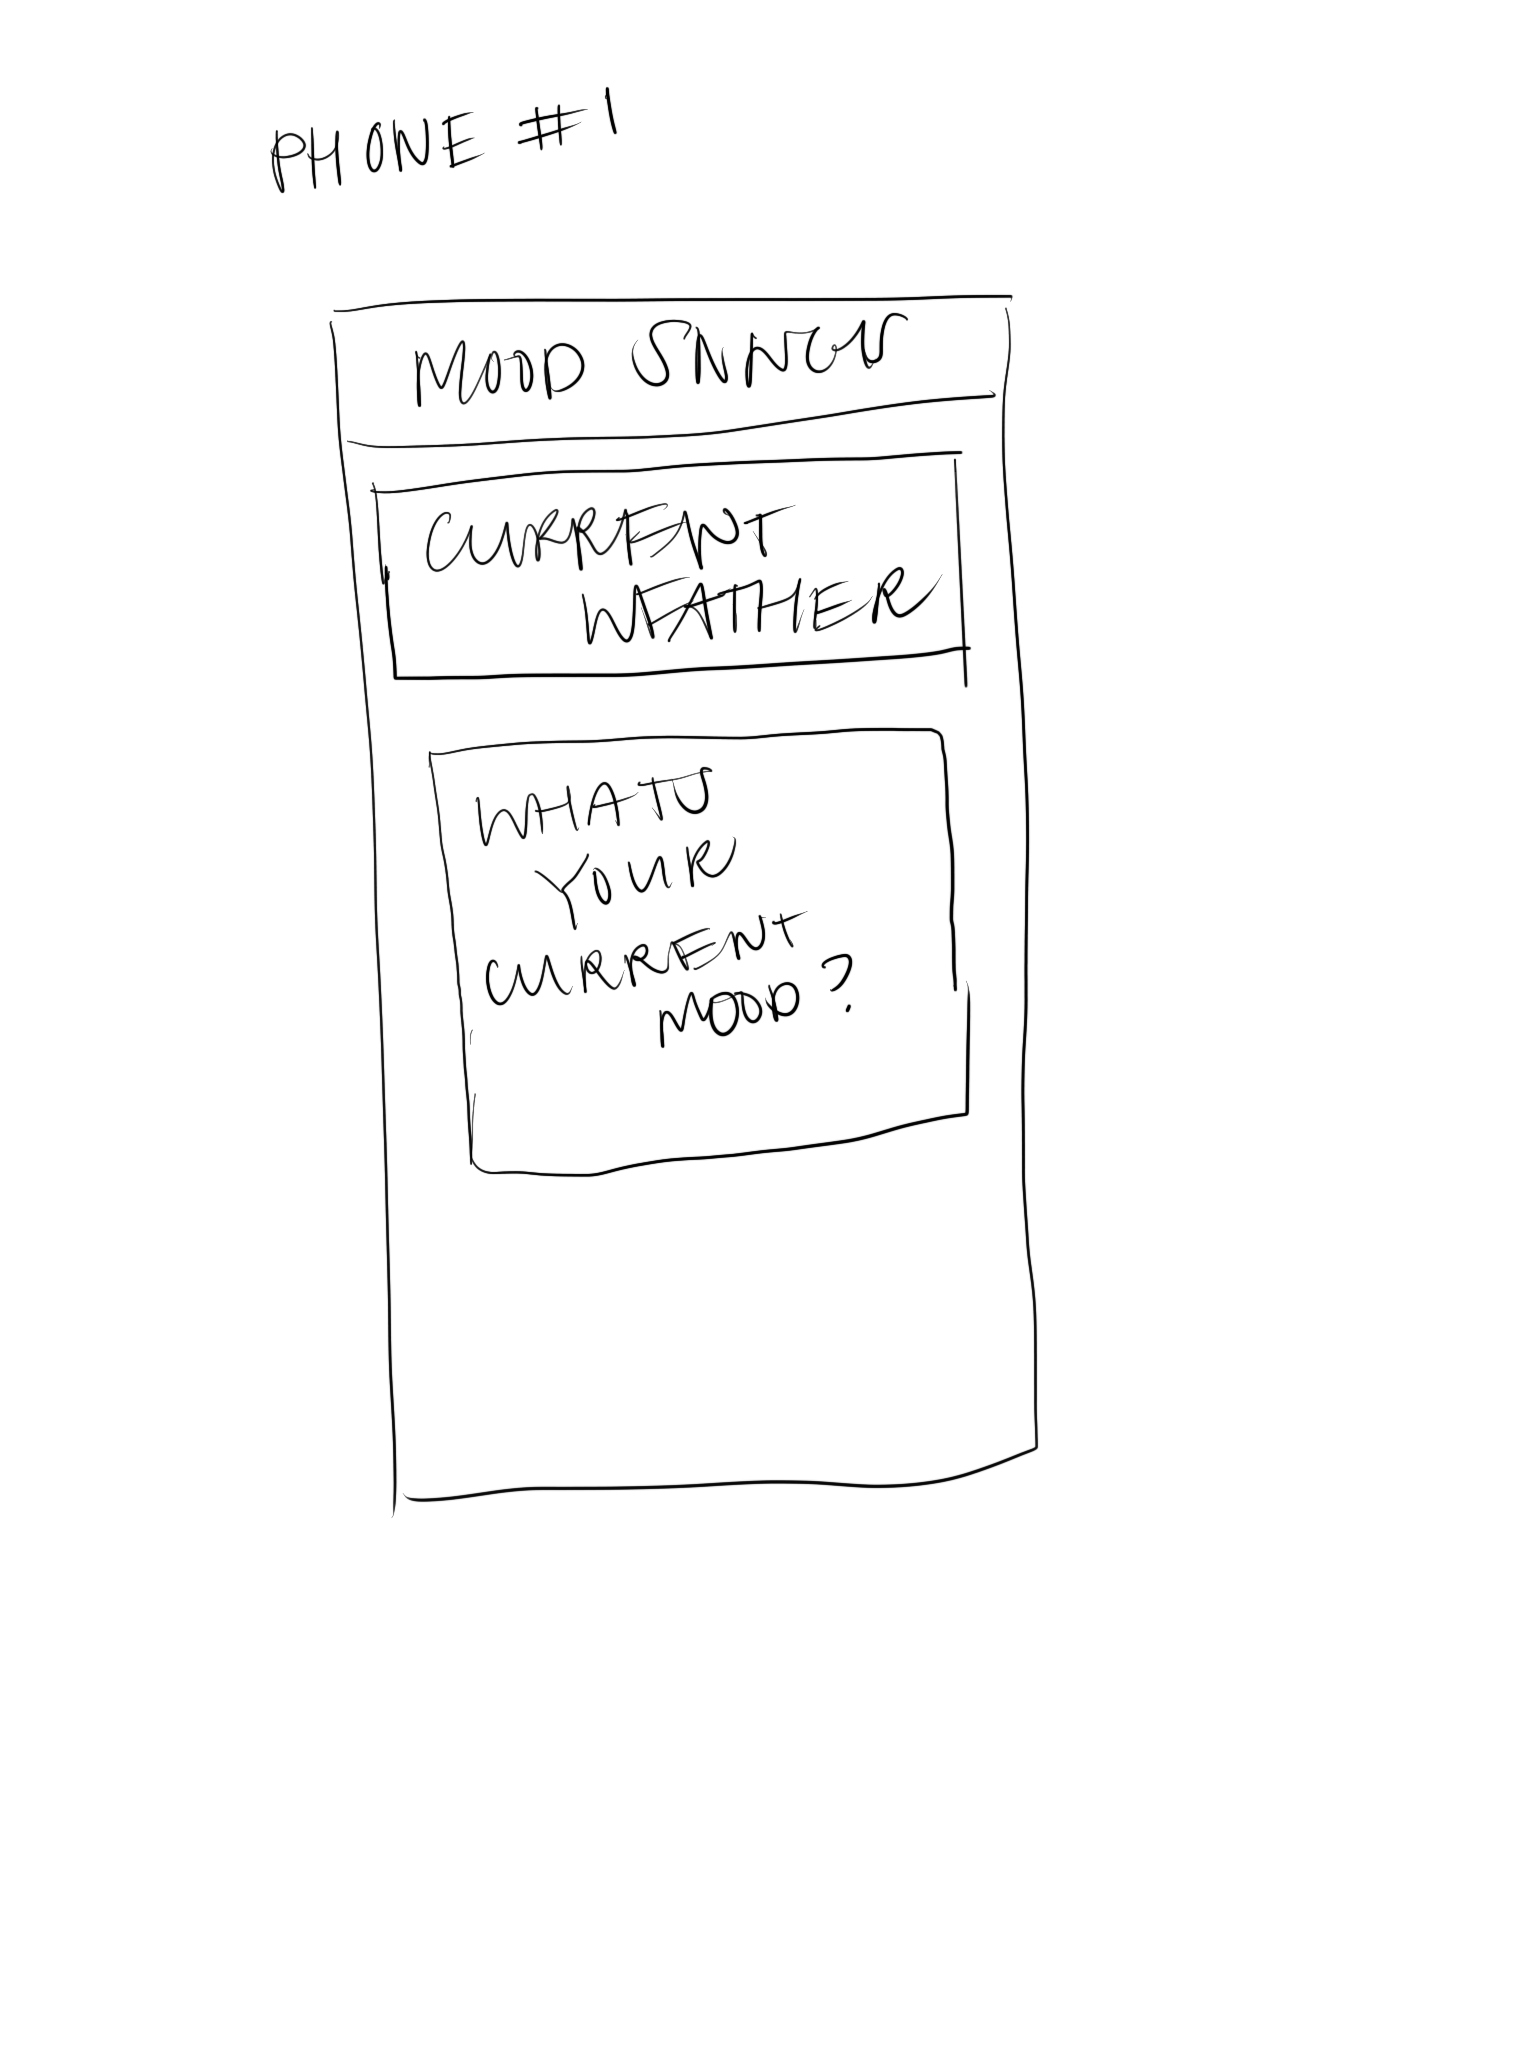 PHONE #1
MOOD
CURRENT
WEATHER
WHATS
YOUR
CURRENT
MOOD?